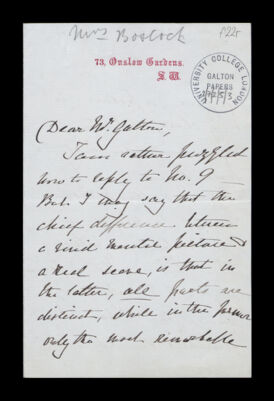 Mrs Bostock
f22r
73, Onslow Gardens.
S.W.
UNIVERSITY COLLEGE LONDON
GALTON
PAPERS
Dear Mr. Galton,
I am rather puzzled
how to reply to No. 9
But I may say that the
chief difference between
a vivid mental picture &
a real scene, is that in
the latter, all parts are
distinct, while in the former
only the most remarkable